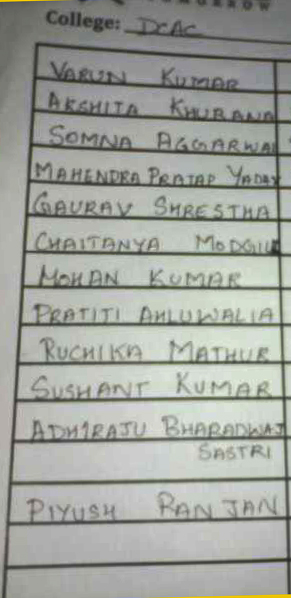 College: DCAC
VARUN KUMAR
AKSHITA KHURANA
SOMNA AGGARWAL
MAHENDRA PRATAP YADAV
GAURAV SHRESTHA
CHAITANYA MODGILL
MOHAN KUMAR
PRATITI AHLUWALIA
RUCHIKA MATHUR
SUSHANT KUMAR
ADHIRAJU BHARADWAJ
SASTRI
PIYUSH RANJAN